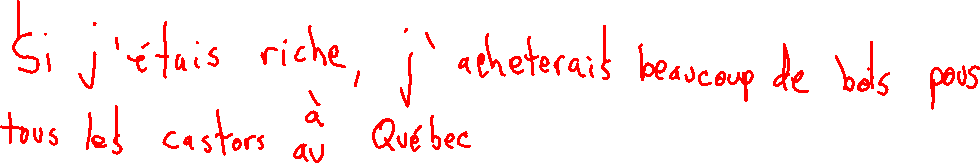 Si j'étais riche, j'acheterais beaucoup de bois pous
tous les castors à au Québec